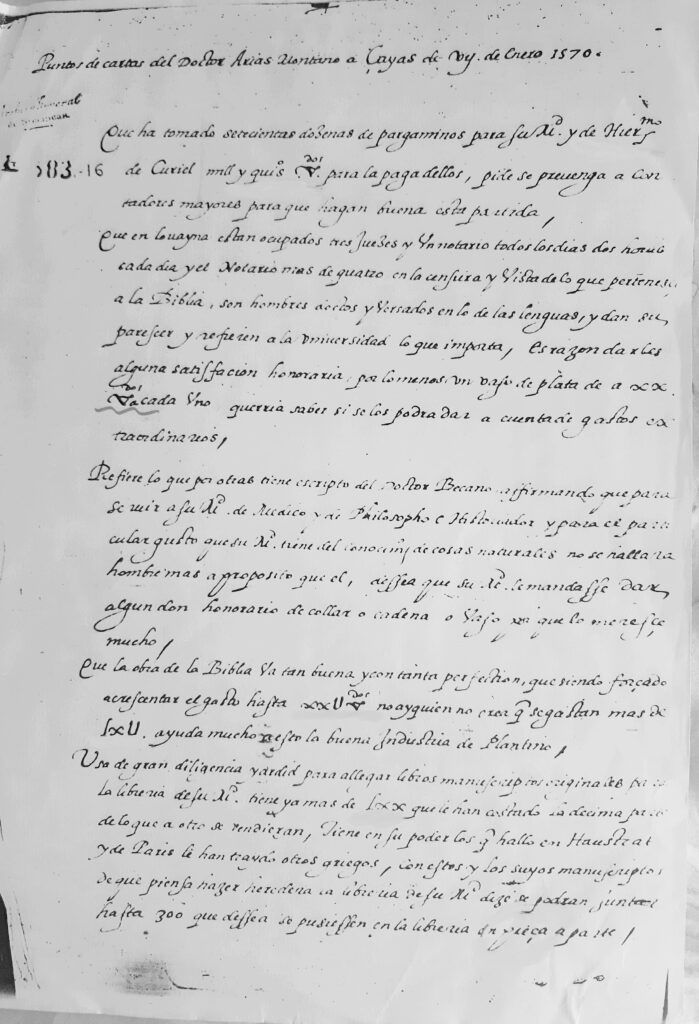 Puntos de cartas del Doctor Arias Montano a Çayas de vij. de Enero 1570.
General
Que ha tomado setecientas dozenas de pargaminos para su Mᵈ. y de Hierᵐᵒ
L 583.-16
de Curiel mill y quiºs ∇dos para la paga dellos, pide se prevenga a Con
tadores mayores para que hagan buena esta partida,
Que en lovayna estan ocupados tres Juezes y Un notario todos los dias dos horas
cada dia y el Notario mas de quatro en la censura y Vista de lo que pertenesçe
a la Biblia, son hombres doctos y Versados en lo de las lenguas, y dan su
paresçer y refieren a la Universidad lo que importa, es razon darles
alguna satisfacion honoraria, por lo menos un vaso de plata de a xx.
∇dos a cada Uno querria saber si se los podra dar a cuenta de gastos ex
traordinarios,
Refiere lo que por otras tiene escripto del Doctor Becano affirmando que para
servir a su Mᵈ. de Medico y de Philosopho e Historiador y para el parti
cular gusto que su Mᵈ. tiene del conocimᵗᵒ de cosas naturales no se hallara
hombre mas a proposito que el, dessea que su Mᵈ. le mandasse dar
algun don honorario de collar o cadena o Vaso que lo meresçe
mucho,
Que la obra de la Biblia Va tan buena y con tanta perfection, que siendo forçado
acresentar el gasto hasta xxU ∇dos no ay quien no crea q̃ se gastan mas de
lxU. ayuda mucho a esto la buena Industria de Plantino,
Usa de gran diligencia y ardid para allegar libros manuscriptos originales para
la libreria de su Mᵈ. tiene ya mas de lxx que le han costado la decima parte
de lo que a otro se vendieran, Tiene en su poder los q̃ hallo en Haustrat
y de Paris le han traydo otros griegos, con estos y los suyos manuscriptos
de que piensa hazer heredera la libreria de su Mᵈ dize se podran juntar
hasta 300 que dessea se pusiessen en la libreria en pieça a parte,